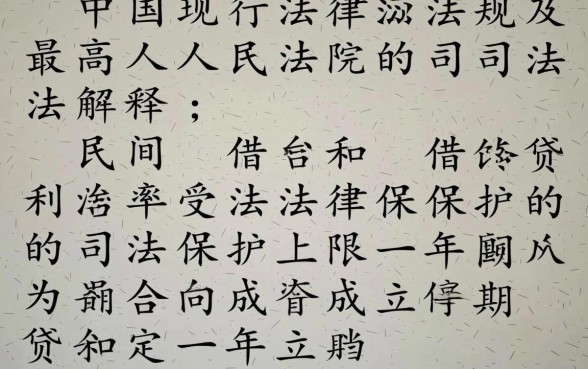 中国现行法律法规及
最高人人民法院的司司法
法解释；
民间 借和 借贷
利率受法法律保保护的
的司法保护上限一年从
为合向成成立停期
贷和定一年立